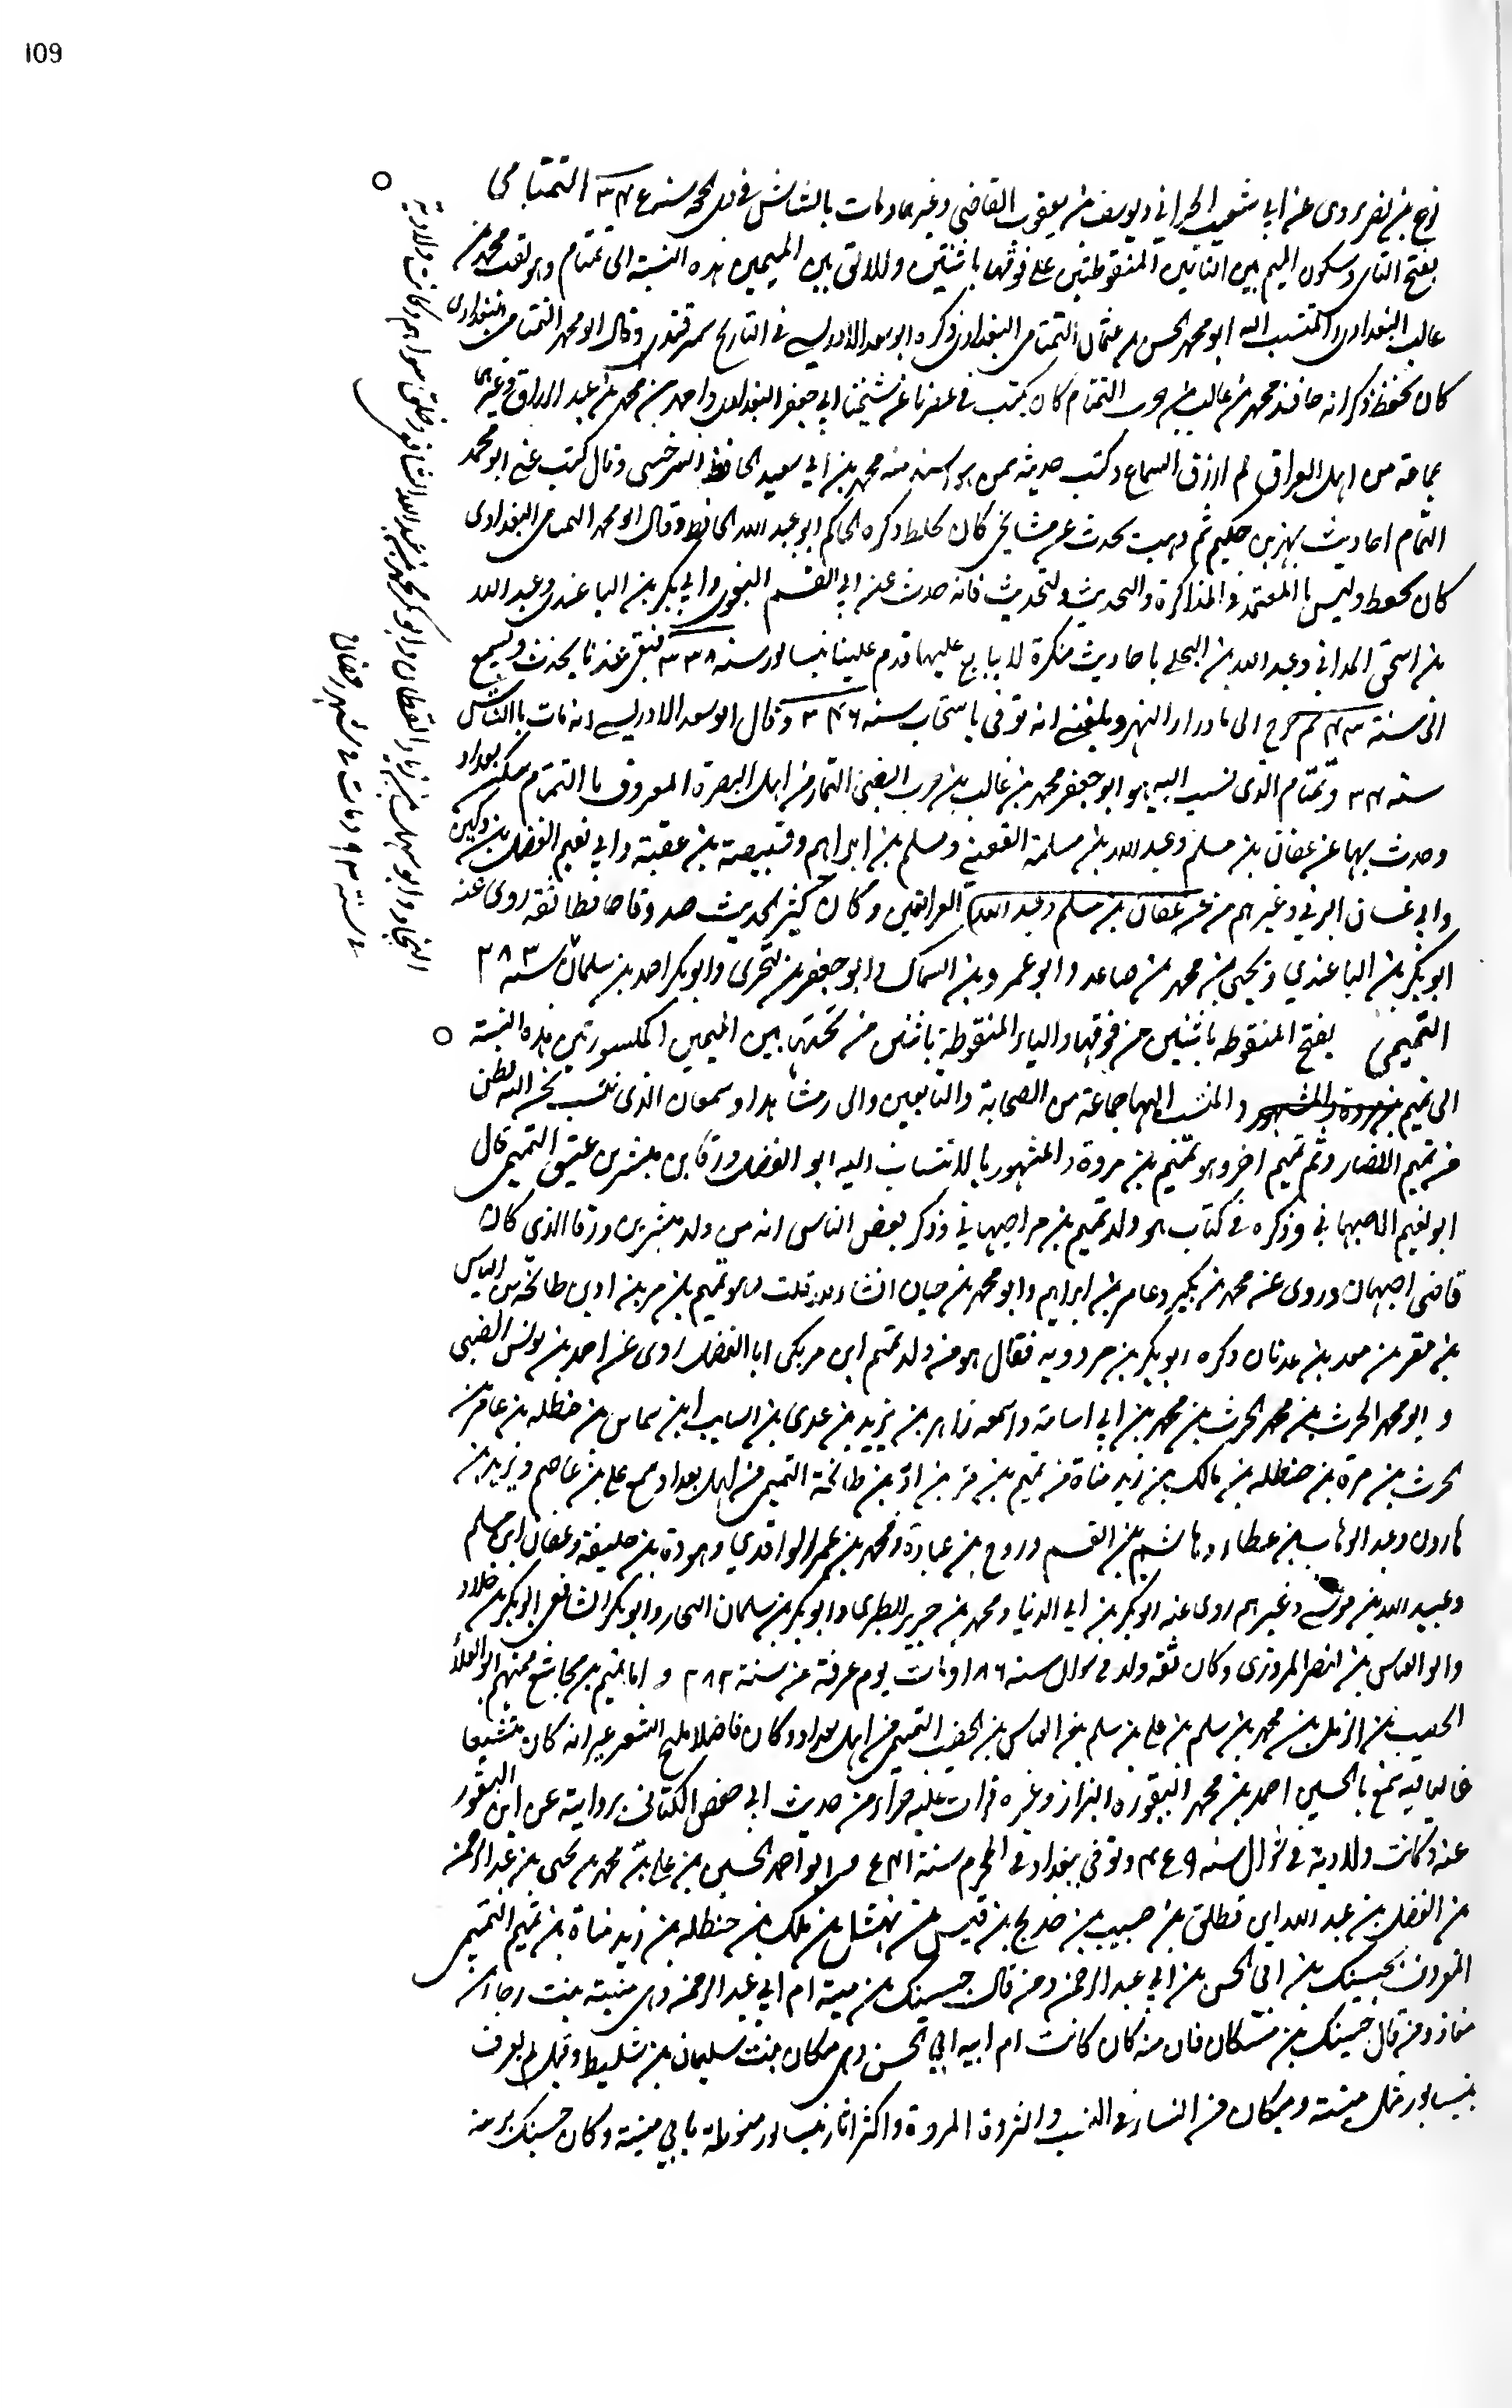 109
نوح بن نصر روى عن ابي شعيب الحراني ويوسف بن يعقوب القاضي وغيرهما ومات بالشاش في ذي الحجة سنة ٣٤ التمتامي
بفتح التاء وسكون الميم بين التائين المنقوطتين على فوقها باثنتين والالف بين الميمين هذه النسبة الى تمتام وهو لقب محمد بن
غالب البغدادي والمنتسب اليه ابو محمد الحسن بن عثمان التمتامي البغدادي ذكره ابو سعد الادريسي في التاريخ سمرقندي وقال ابو محمد التمتامي البغدادى
كان يحفظ ذكر انه حافد محمد بن غالب بن حرب التمتام كان يكتب في عصرنا عن شيخنا ابي جعفر البغدادي واحمد بن محمد بن عبد الرزاق وغيرهما
جماعة من اهل العراق لم ارزق السماع وكتب حديثه ممن هو اسند منه محمد بن ابي سعيد الحافظ السرخسي وقال كتب عني ابو محمد
التمام احاديث بهز بن حكيم ثم ذهبت يحدث عن مشايخي كان يخلط ذكره الحاكم ابو عبد الله الحافظ وقال ابو محمد التمتامي البغدادى
كان يحفظ وليس باالمعتمد في المذاكرة والتحديث فانه حدث عن ابي القسم البغوى وابي بكر بن الباغندى وعبد الله
بن اسحق المدائني وعبد الله بن البجلي باحاديث منكرة لا يتابع عليها قدم علينا نيسابور سنة ٣٣٨ فبقي عندنا يحدث ويسمع
الى سنة ٤٣ ثم خرج الى ماوراء النهر وبلغني انه توفى باسبيجاب سنة ٣٤٦ وقال ابو سعد الادريسي انه مات باالشاش
سنة ٣٤ وتمتام الذى نسب اليه هو ابو جعفر محمد بن غالب بن حرب الضبي التمار من اهل البصرة المعروف باالتمتام سكن بغداد
وحدث بها عن عفان بن مسلم وعبد الله بن مسلمة القعنبي ومسلم بن ابراهيم وقبيصة بن عقبة وابي نعيم الفضل بن دكين
وابي غسان النهدي وغيرهم من عن عفان بن مسلم وعبد الله العراقيين وكان كثير الحديث صدوقا حافظا ثقة روى عنه
ابو بكر بن الباغندي ويحيى بن محمد بن صاعد وابو عمرو بن السماك وابو جعفر بن البخترى وابو بكر احمد بن سلمان سنة ٢٨٣
التميمي بفتح المنقوطة باثنتين من فوقها والياء المنقوطة باثنتين من تحتها بين الميمين المكسورتين هذه النسبة
الى تميم والمنتسب اليها جماعة من الصحابة والتابعين والى زمننا هذا وسمعان الذى ننتسب نحن اليه بطن
من تميم الانصار وثم تميم اخر وهو تميم بن مروة والمشهور بالانتساب اليه ابو الفضل ورقا بن مبشر بن عتيق التميمي قال
ابو نعيم الاصبهاني وذكره في كتاب هو ولد تميم بن مر اصبهاني وذكر بعض الناس انه من ولد مبشر بن ورقا الذى كان
قاضى اصبهان وروى عنه محمد بن بكير وعامر بن ابراهيم وابو محمد بن حيان قلت هو تميم بن مر بن اد بن طابخة بن الياس
بن مضر بن معد بن عدنان ذكره ابو بكر بن مردويه فقال هو من ولد تميم ابن مر يكنى ابا الفضل روى عن احمد بن يونس الضبي
و ابو محمد الحرث بن محمد الحرث بن محمد بن ابي اسامة واسمه زاهر بن يزيد بن عدى بن السايب ابن شماس بن حنظله بن عامر بن
الحرث بن مرة بن حنظله بن مالك بن زيد مناة من تميم بن مر بن اد بن طابخة التميمي من اهل بغداد سمع علي بن عاصم ويزيد بن
هارون وعبد الوهاب بن عطاء وهاشم بن القسم وروح بن عبادة ومحمد بن عمر الواقدي وهوذة بن خليفة وعفان ابن مسلم
وعبيد الله بن موسى وغيرهم روى عنه ابو بكر بن ابي الدنيا ومحمد بن جرير الطبرى وابو بكر بن سلمان النجار وابو بكر الشافعي ابو بكر بن خلاد
وابو العباس بن النضر المروزى وكان ثقة ولد في شوال سنة ١٨٦ ومات يوم عرفة من سنة ٢٨٢ و اما تميم بن مجاشع فمنهم ابو العلاء
بن محمد بن سلم بن علي بن سلم بن العباس بن الخصيب التميمي من اهل بغداد وكان فاضلا مليح الشعر غير انه كان متشيعا
غاليا فيه سمع باالحسين احمد بن محمد النقور البزاز وغيره قرات عليه جزاء من حديث ابي حفص الكتاني بروايته عن ابن النقور
عنه وكانت ولادته في شوال سنة ٤٤٩ وتوفى ببغداد في المحرم سنة ٥٤١ وابو احمد الحسين بن علي بن محمد بن يحيى بن عبد الرحمن
بن الفضل بن عبد الله ابن قطلق بن حبيب بن خديج بن قيس بن نهشل بن ملك بن حنظله بن زيد مناة بن تميم التميمي
المعروف بحسينك بن ابي الحسن بن ابي عبد الرحمن ومن قال حسينك بن منيته ام ابي عبد الرحمن وهي منيته بنت رجاء بن
معاذ ومن قال حسينك بن ميكان فان ميكان كانت ام ابيه ابي الحسن وهى ميكان بنت سليمان بن سليط وقيل لم يعرف
بنيسابور مثل منيته وميكان من النساء في النسب والثروة المروة واكثر اثار نيسابور منوطة بابي منيته وكان حسينك تربية
النجاد وابو سهل بن زياد القطان وابو بكر محمد بن عبد الله الشافعي وخلق سواهم وكانت ولادته
في سنة ١٩٣ ومات في شهر رمضان